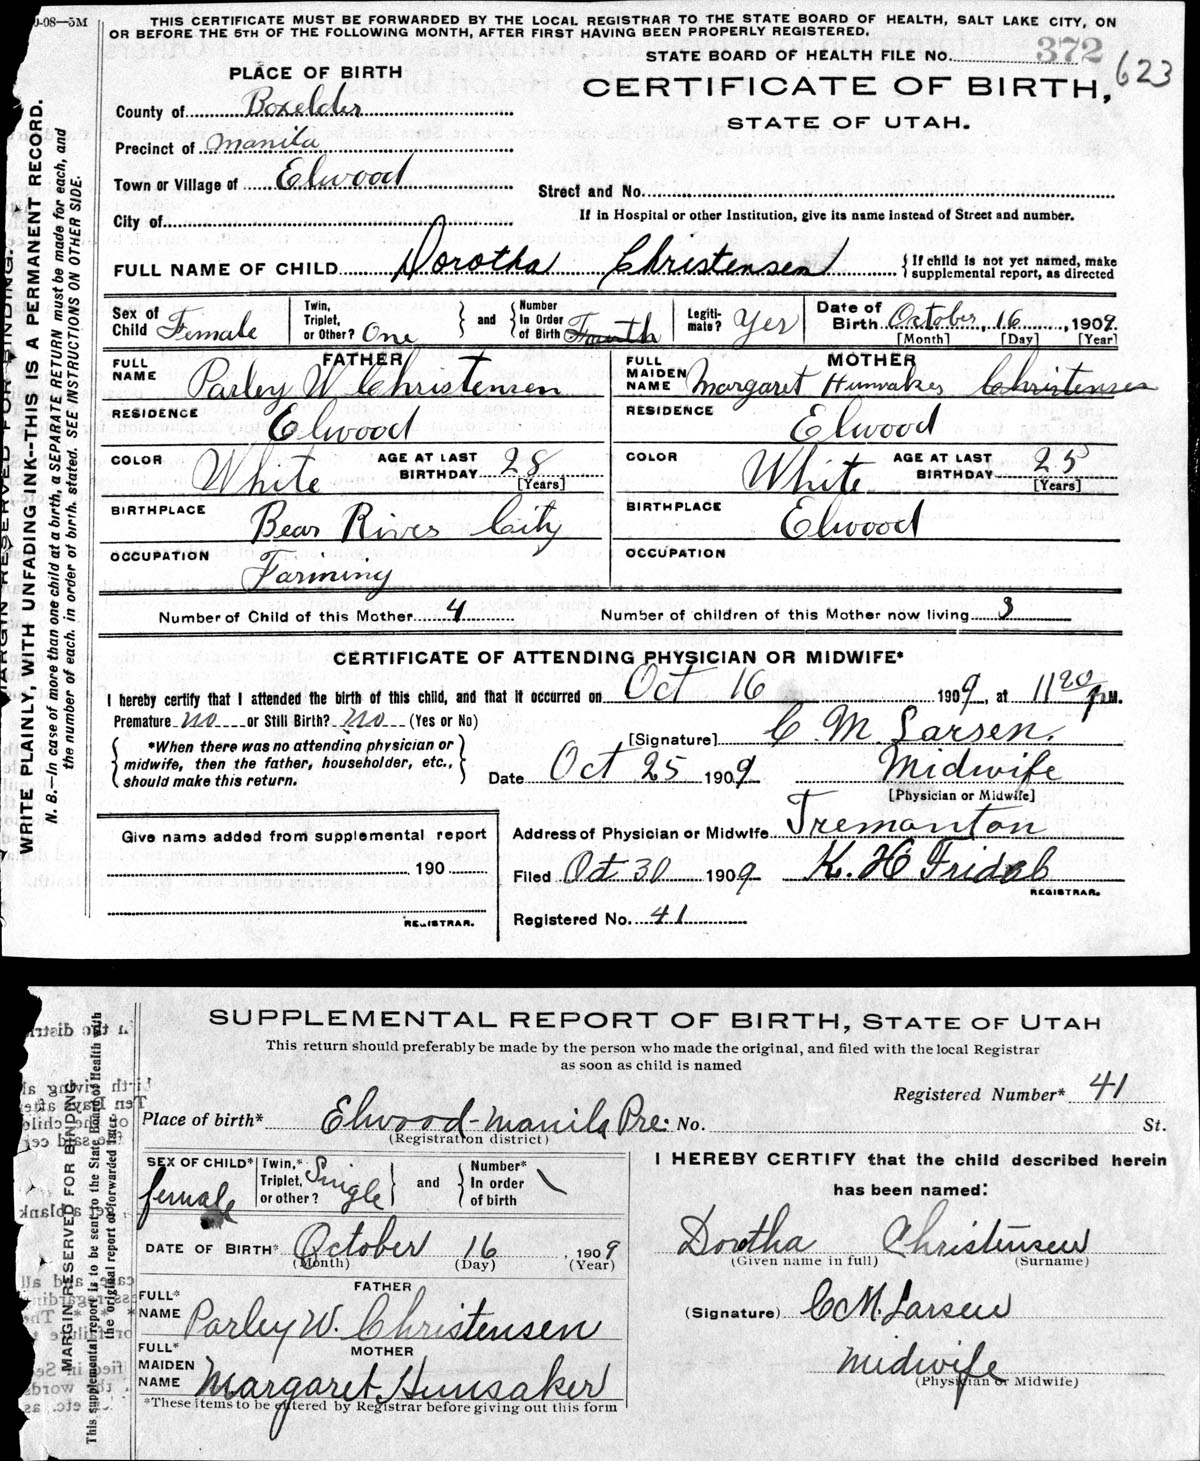 9-08—5M
THIS CERTIFICATE MUST BE FORWARDED BY THE LOCAL REGISTRAR TO THE STATE BOARD OF HEALTH, SALT LAKE CITY, ON
OR BEFORE THE 5TH OF THE FOLLOWING MONTH, AFTER FIRST HAVING BEEN PROPERLY REGISTERED.
STATE BOARD OF HEALTH FILE NO. 372
623
PLACE OF BIRTH
CERTIFICATE OF BIRTH,
STATE OF UTAH.
County of Boxelder
Precinct of Manila
Town or Village of Elwood
Street and No.
City of
If in Hospital or other Institution, give its name instead of Street and number.
FULL NAME OF CHILD Dorotha Christensen
If child is not yet named, make
supplemental report, as directed
Sex of Child Female
Twin, Triplet, or Other? One
and
Number In Order of Birth Fourth
Legiti-mate? Yes
Date of Birth October, 16, 1909.
[Month] [Day] [Year]
FATHER
FULL NAME Parley W Christensen
MOTHER
FULL MAIDEN NAME Margaret Hunsaker Christensen
RESIDENCE Elwood
RESIDENCE Elwood
COLOR White
AGE AT LAST BIRTHDAY 28 [Years]
COLOR White
AGE AT LAST BIRTHDAY 25 [Years]
BIRTHPLACE Bear River City
BIRTHPLACE Elwood
OCCUPATION Farming
OCCUPATION
Number of Child of this Mother 4
Number of children of this Mother now living 3
CERTIFICATE OF ATTENDING PHYSICIAN OR MIDWIFE*
I hereby certify that I attended the birth of this child, and that it occurred on Oct 16 1909, at 11 20 P.M.
Premature no or Still Birth? no (Yes or No)
*When there was no attending physician or
midwife, then the father, householder, etc.,
should make this return.
[Signature] C. M. Larsen.
Date Oct 25 1909
Midwife
[Physician or Midwife]
Address of Physician or Midwife Tremonton
Filed Oct 30 1909 K. H. Fridal
REGISTRAR.
Registered No. 41
Give name added from supplemental report
190
REGISTRAR.
MARGIN RESERVED FOR BINDING.
WRITE PLAINLY, WITH UNFADING INK--THIS IS A PERMANENT RECORD.
N. B.—In case of more than one child at a birth, a SEPARATE RETURN must be made for each, and
the number of each, in order of birth, stated. SEE INSTRUCTIONS ON OTHER SIDE.
SUPPLEMENTAL REPORT OF BIRTH, STATE OF UTAH
This return should preferably be made by the person who made the original, and filed with the local Registrar
as soon as child is named
Registered Number* 41
Place of birth* Elwood-Manila Pre. No. St.
(Registration district)
SEX OF CHILD* female
Twin,* Triplet, or other? Single
and
Number* In order of birth
DATE OF BIRTH* October 16, 1909
(Month) (Day) (Year)
FATHER
FULL* NAME Parley W. Christensen
MOTHER
FULL* MAIDEN NAME Margaret Hunsaker
*These items to be entered by Registrar before giving out this form
I HEREBY CERTIFY that the child described herein
has been named:
Dorotha Christensen
(Given name in full) (Surname)
(Signature) C M. Larsen
Midwife
(Physician or Midwife)
MARGIN RESERVED FOR BINDING
This supplemental report is to be sent to the State Board of Health with
the original report or forwarded later